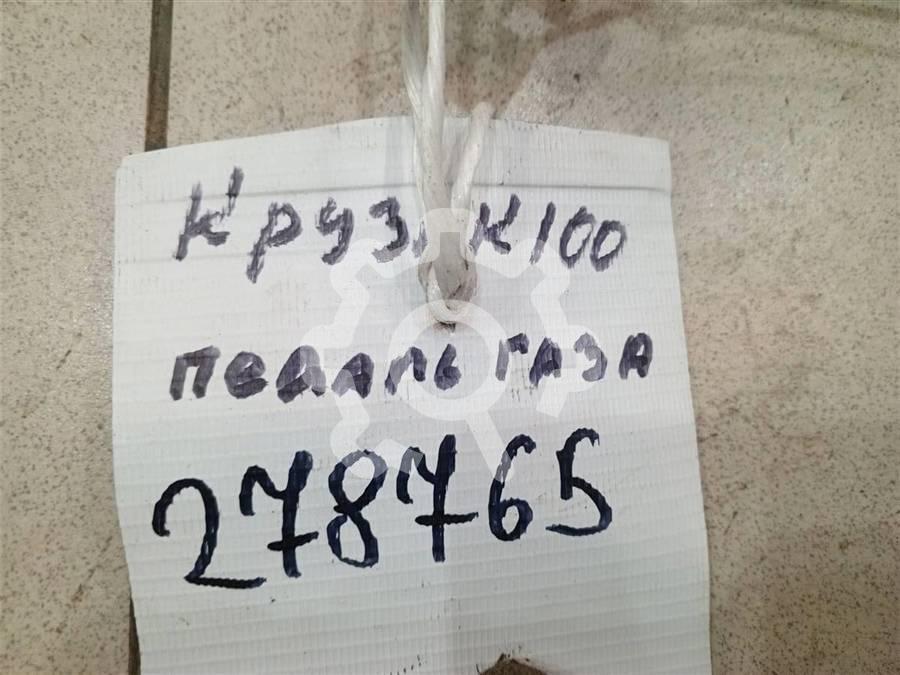 Круз К100
педаль газа
278765